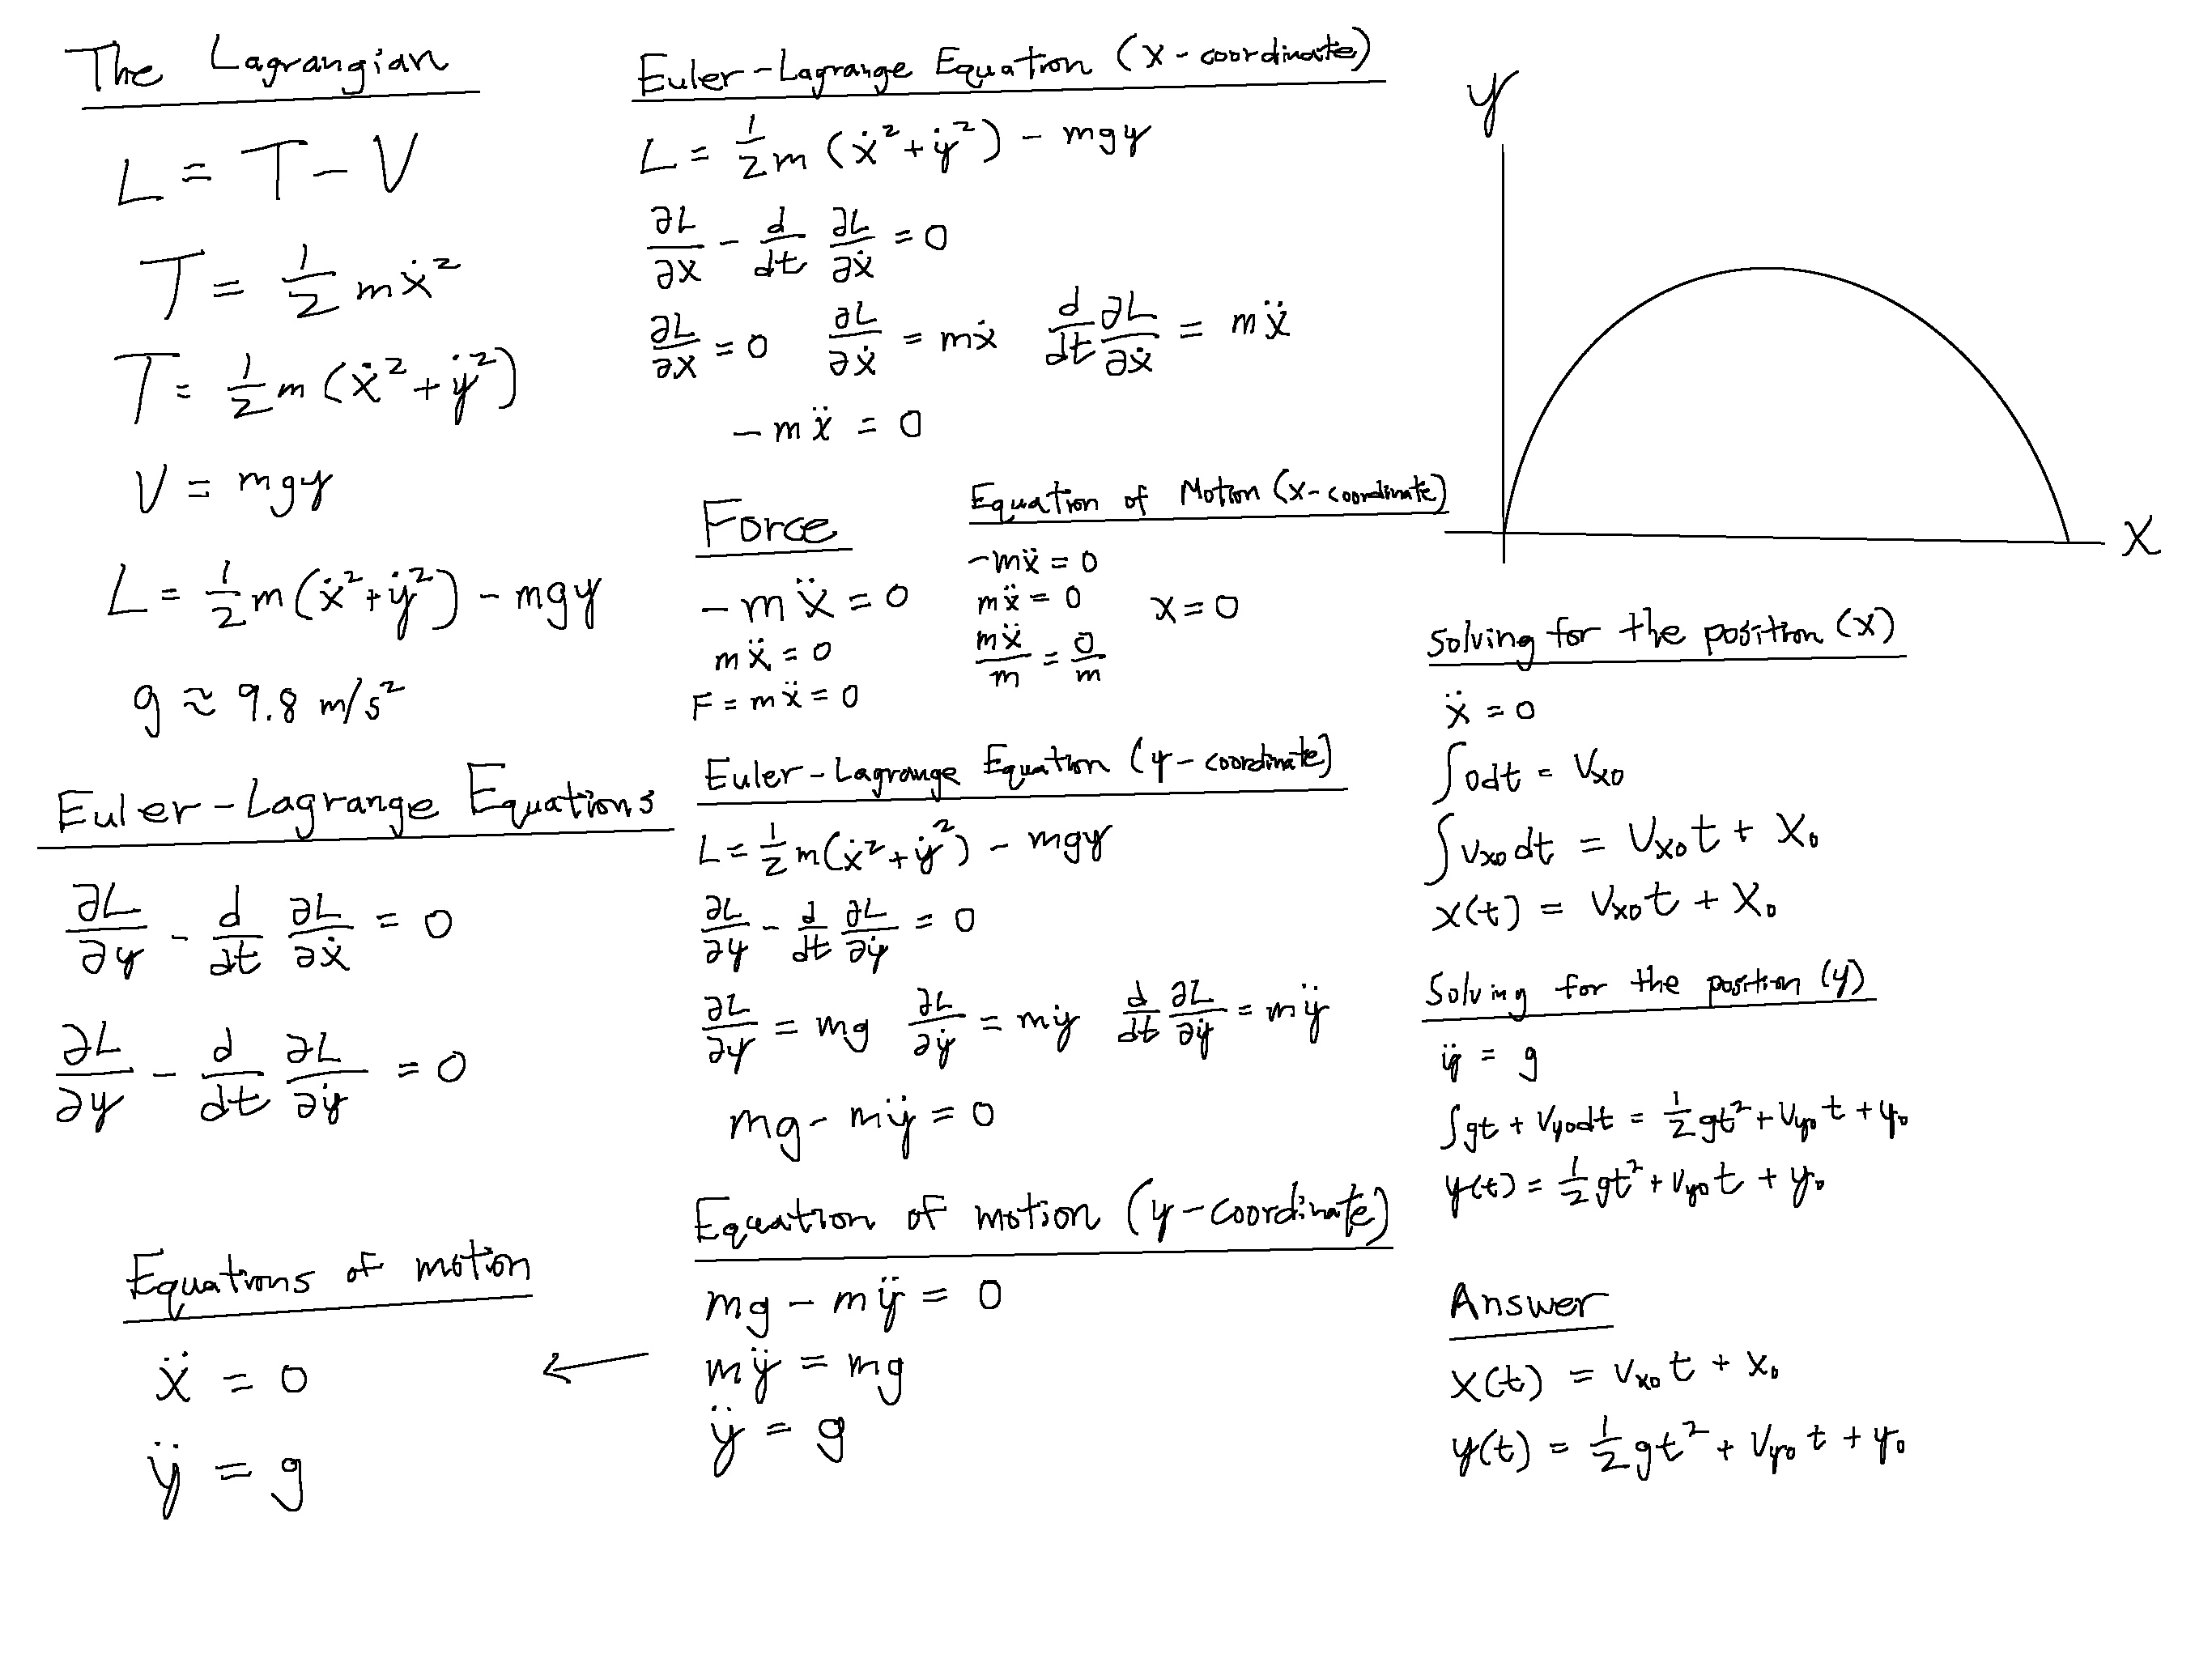 The Lagrangian
L = T - V
T = 1/2 mẋ²
T = 1/2 m (ẋ² + ẏ²)
V = mgy
L = 1/2 m(ẋ² + ẏ²) - mgy
g ≈ 9.8 m/s²
Euler-Lagrange Equations
∂L/∂y - d/dt ∂L/∂ẋ = 0
∂L/∂y - d/dt ∂L/∂ẏ = 0
Equations of motion
ẍ = 0
ÿ = g
Euler-Lagrange Equation (x-coordinate)
L = 1/2 m (ẋ² + ẏ²) - mgy
∂L/∂x - d/dt ∂L/∂ẋ = 0
∂L/∂x = 0 ∂L/∂ẋ = mẋ d/dt ∂L/∂ẋ = mẍ
-mẍ = 0
Force
-mẍ = 0
mẍ = 0
F = mẍ = 0
Equation of Motion (x-coordinate)
-mẍ = 0
mẍ = 0 x = 0
mẍ/m = 0/m
Euler-Lagrange Equation (y-coordinate)
L = 1/2 m(ẋ² + ẏ²) - mgy
∂L/∂y - d/dt ∂L/∂ẏ = 0
∂L/∂y = mg ∂L/∂ẏ = mẏ d/dt ∂L/∂ẏ = mÿ
mg - mÿ = 0
Equation of motion (y-coordinate)
mg - mÿ = 0
← mÿ = mg
ÿ = g
y
x
Solving for the position (x)
ẍ = 0
∫0dt = Vx0
∫Vx0dt = Vx0t + X0
x(t) = Vx0t + X0
Solving for the position (y)
ÿ = g
∫gt + Vy0dt = 1/2 gt² + Vy0t + y0
y(t) = 1/2 gt² + Vy0t + y0
Answer
x(t) = Vx0t + x0
y(t) = 1/2 gt² + Vy0t + y0